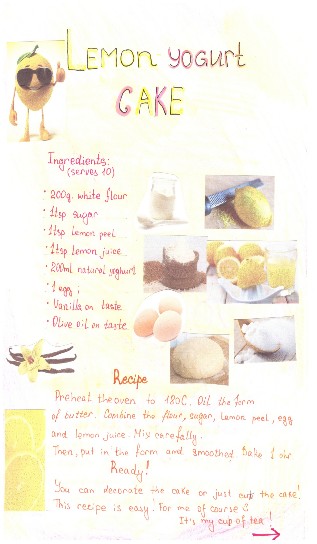 Lemon yogurt
CAKE
Ingredients:
(serves 10)
• 200g. white flour
• 1tsp sugar
• 1tsp lemon peel
• 1tsp lemon juice
• 200ml natural yoghurt
• 1 egg
• Vanilla on taste
• Olive oil on taste
Recipe
Preheat the oven to 180C. Oil the form
of butter. Combine the flour, sugar, lemon peel, egg
and lemon juice. Mix carefully.
Then, put in the form and smoothed. Bake 1 our
Ready!
You can decorate the cake or just cup the cake!
This recipe is easy. For me of course :)
It's my cup of tea!